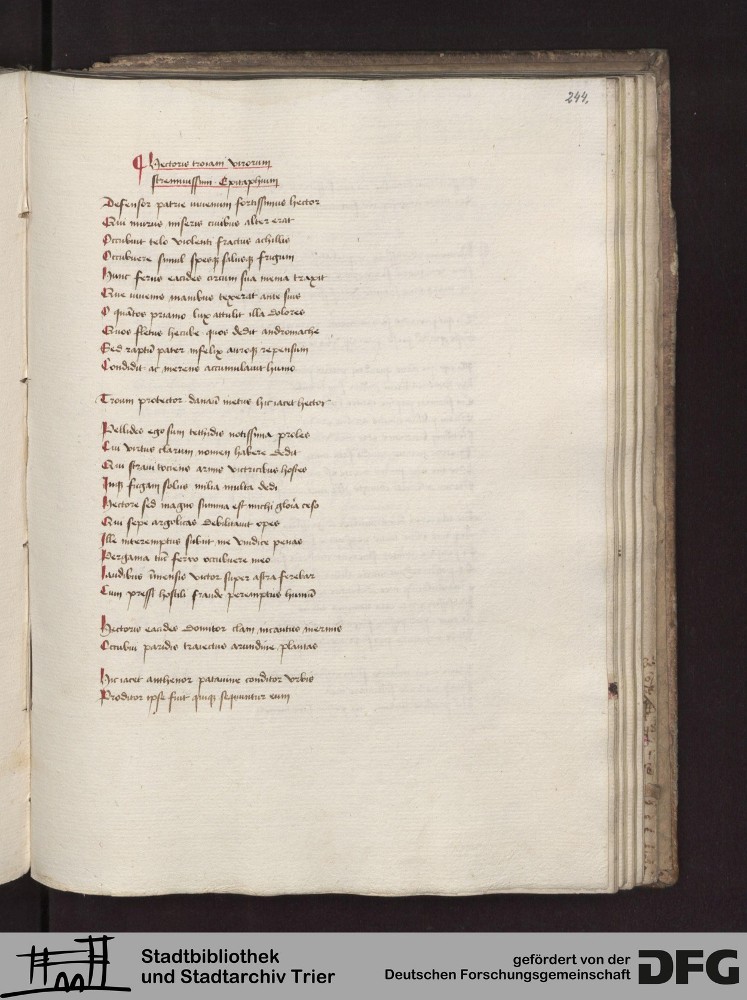 244.
¶ Hectoris troiani virorum
strennuissimi Epitaphium
Defensor patrie iuuenum fortissimus hector
Qui murus miseris ciuibus alter erat
Occubuit telo violenti fractus achillis
Occubuere simul spesqȝ salusqȝ frigum
Hunc ferus eacides circum sua menia traxit
Que iuuenis manibus texerat ante suis
O quātos priamo lux attulit illa dolores
Quos fletus hecube quos dedit andromache
Sed raptū pater infelix auroqȝ repensum
Condidit ac merens accumulauit humo
Troum protector danaū metus hic iacet hector
Pellides ego sum tethidis notissima proles
Cui virtus clarum nomen habere dedit
Qui straui tociens armis victricibus hostes
Inqȝ fugam solus milia multa dedi
Hectore sed magno summa est michi gloīa ceso
Qui sepe argolicas debilitauit opes
Ille interemptus subiit me vindice penas
Pergama tūc ferro occubuere meo
Laudibus īmensis victor super astra ferebar
Cum pressi hostili fraude peremptus humū
Hectoris eacides domitor clam incautus inermis
Occubui paridis traiectus arundine plantas
Hic iacet anthenor patauine conditor vrbis
Proditor ipse fuit quiqȝ sequuntur eum
Stadtbibliothek
und Stadtarchiv Trier
gefördert von der
Deutschen Forschungsgemeinschaft
DFG